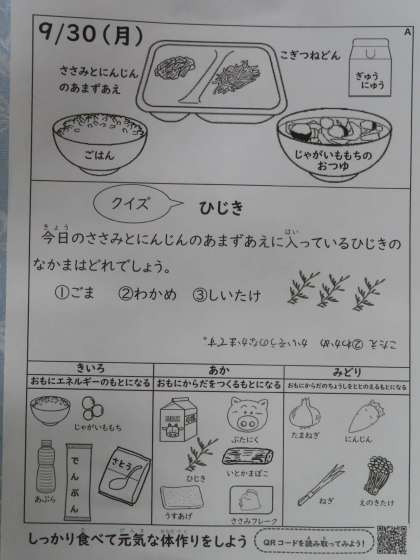 9/30(月)
A
ささみとにんじん
のあまずあえ
こぎつねどん
ぎゅう
にゅう
ごはん
じゃがいももちの
おつゆ
クイズ
ひじき
きょう
はい
今日のささみとにんじんのあまずあえに入っているひじきの
なかまはどれでしょう。
①ごま ②わかめ ③しいたけ
こたえ ②わかめ かいそうのなかまです。
きいろ
おもにエネルギーのもとになる
じゃがいももち
あぶら
でんぷん
さとう
あか
おもにからだをつくるもとになる
ぶたにく
ひじき
いとかまぼこ
うすあげ
ささみフレーク
みどり
おもにからだのちょうしをととのえるもとになる
たまねぎ
にんじん
ねぎ
えのきたけ
しっかり食べて元気な体作りをしよう
QRコードを読み取ってみよう!